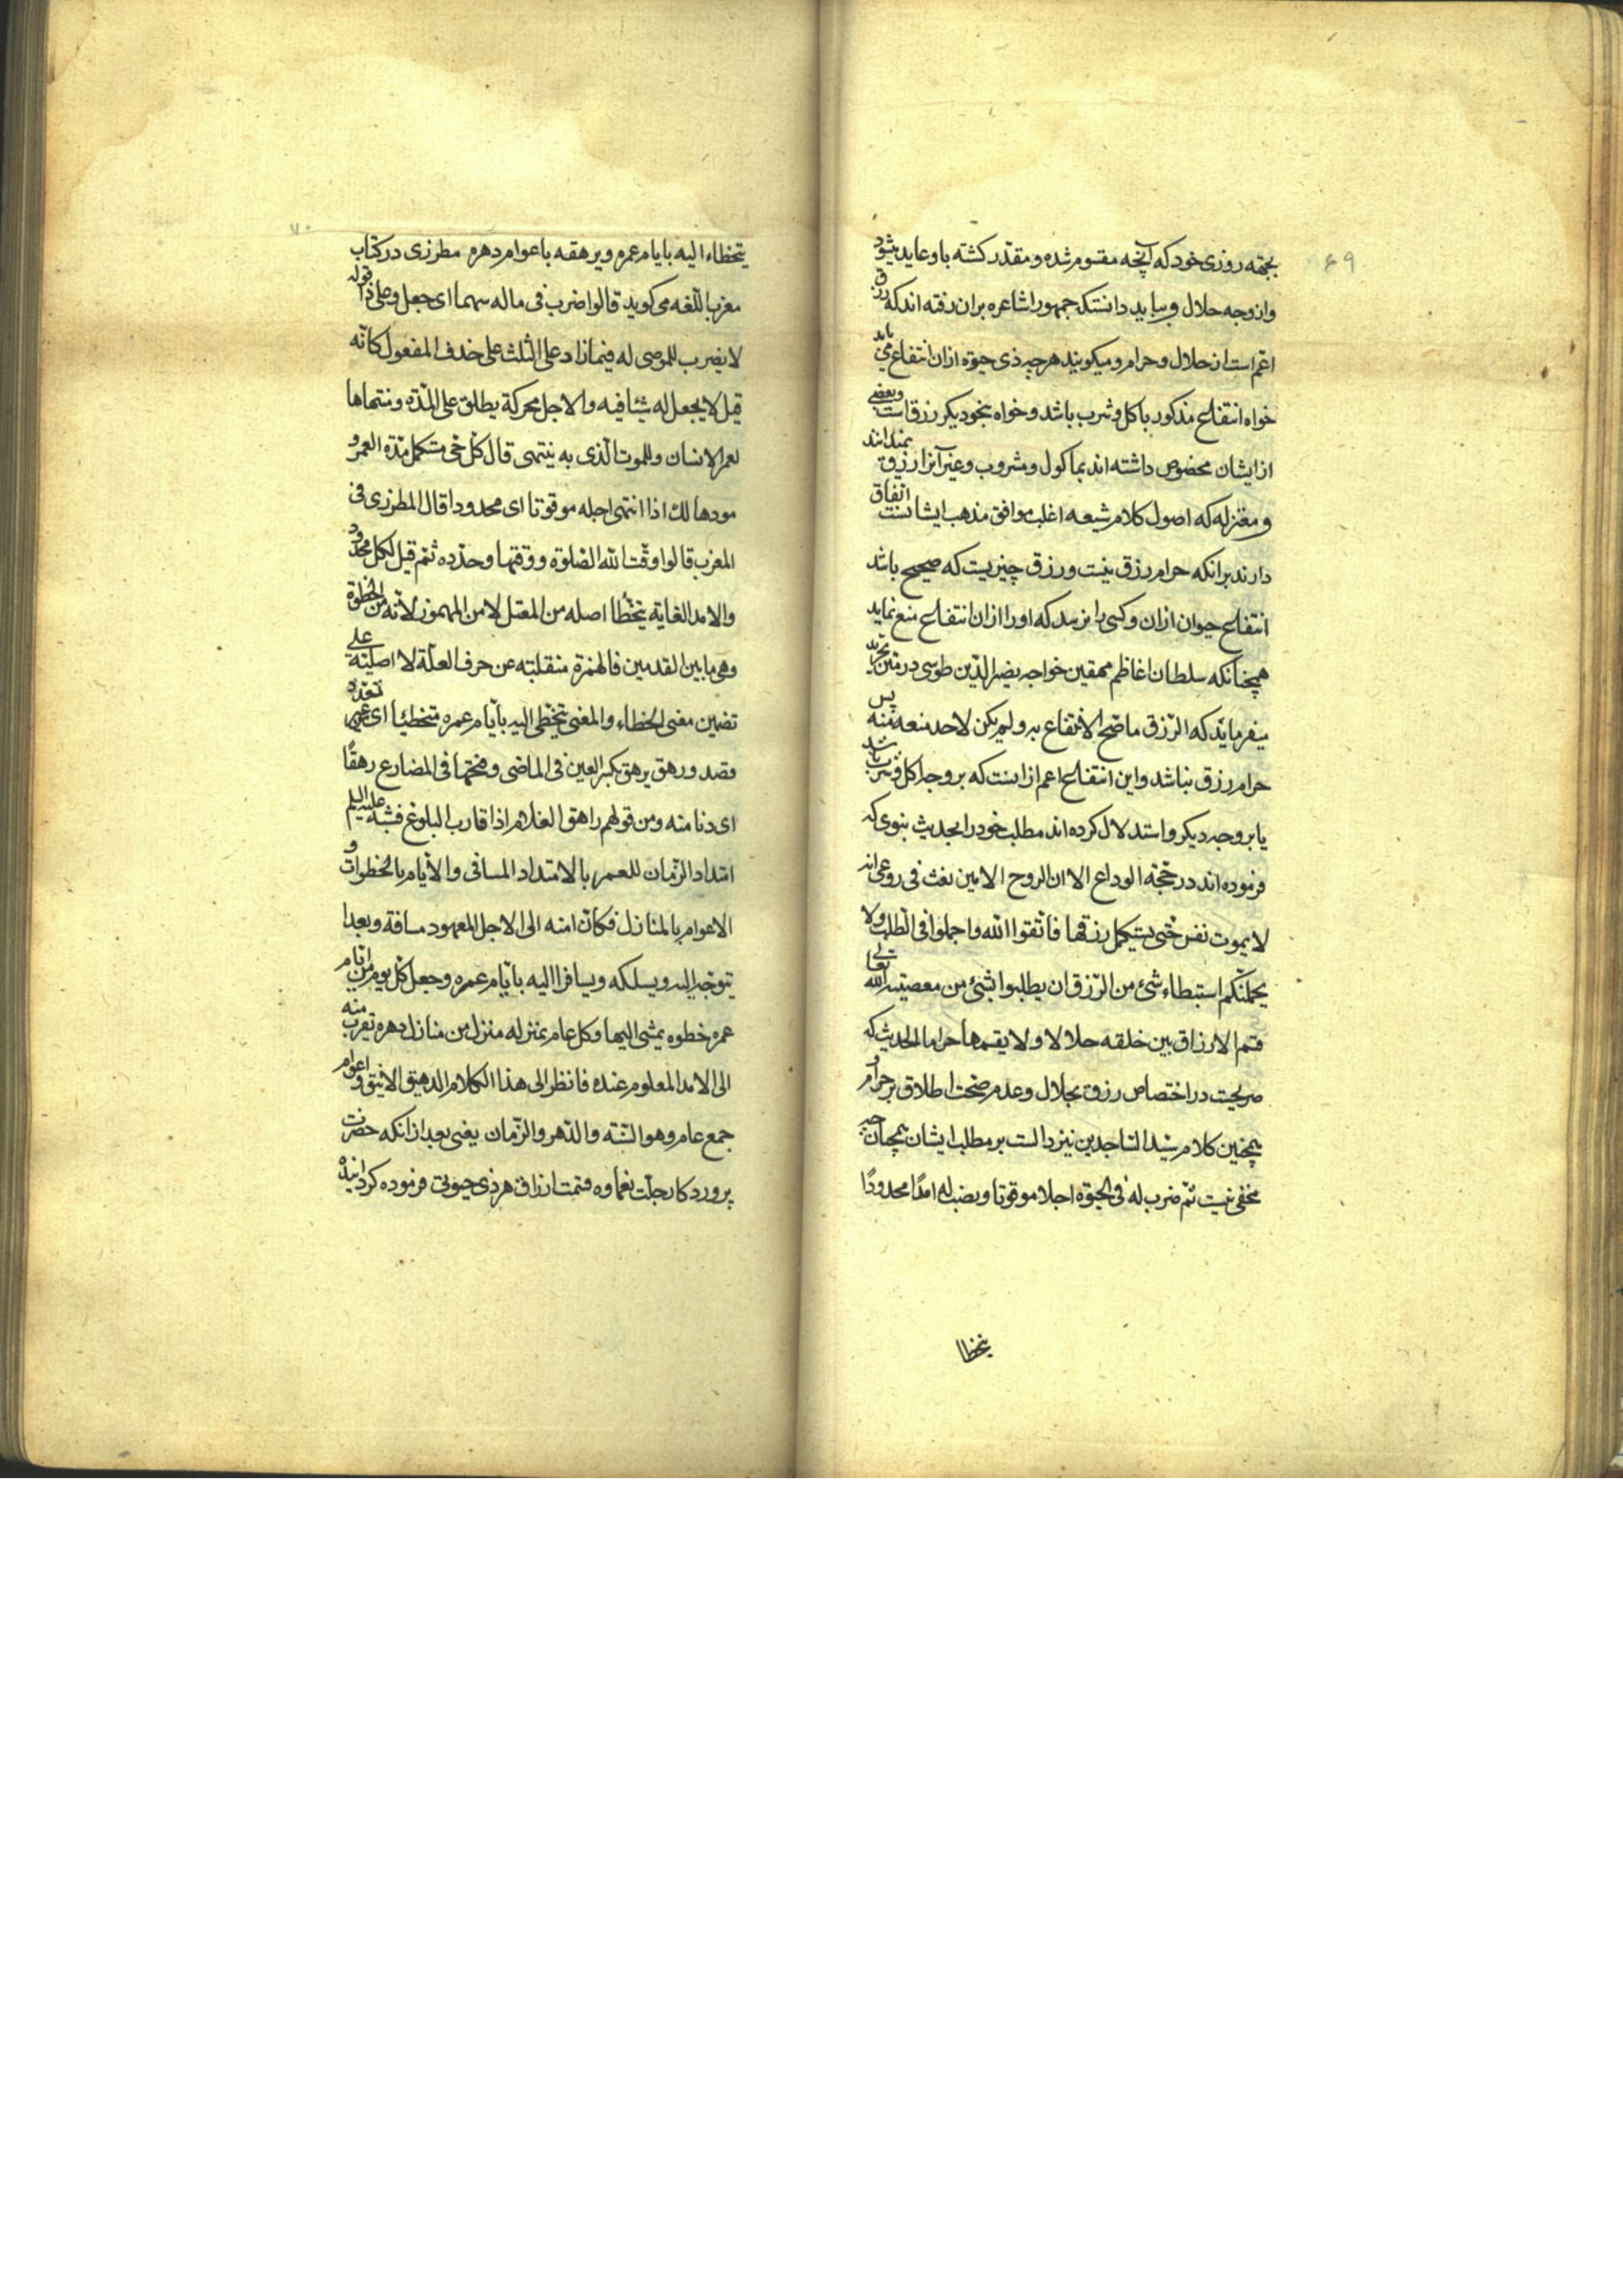 ۶۹
بجهة روزی خود که آنچه مقسوم شده و مقدّر کشته باو عاید بشود
و از وجه حلال و باید دانست که جمهور اشاعره بران رفته اند که رزق
اعمّ است از حلال و حرام و میکویند هرچه ذی حیوة از ان انتفاع می یابد
خواه انتفاع مذکور باکل و شرب باشد و خواه بنحو دیکر رزق است و بعضی
از ایشان مخصوص داشته اند بماکول و مشروب و غیر آنرا رزق نمیدانند
و معتزله که اصول کلام شیعه اغلب موافق مذهب ایشانست اتفاق
دارند برانکه حرام رزق نیست و رزق چیزیست که صحیح باشد
انتفاع حیوان ازان و کسی را نرسد که او را ازان انتفاع منع نماید
همچنانکه سلطان اعاظم محققین خواجه نصیر الدّین طوسی در متن تجرید
میفرماید که الرّزق ما صحّ الانتفاع به و لم یکن لاحد منعه منه پس
حرام رزق نباشد و این انتفاع اعم از اینست که بر وجه اکل و شرب باشد
یا بر وجه دیکر و استدلال کرده اند مطلب خود را بحدیث نبوی که
فرموده اند در حجّة الوداع الا ان الروح الامین نفث فی روعی انه
لا یموت نفس حتّی یستکمل رزقها فاتّقوا الله و اجملوا فی الطلب و لا
یحملنّکم استبطاء شئ من الرّزق ان یطلبوا بشئ من معصیته الله تعالی
قسم الارزاق بین خلقه حلالا و لا یقسمها حراما الحدیث که
صریحست در اختصاص رزق بحلال و عدم صحت اطلاق بر حرام و
همچنین کلام سیّد السّاجدین نیز دالست بر مطلب ایشان همچنانچه
مخفی نیست ثمّ ضرب له فی الحیوة اجلا موقوتا و نصب له امدًا محدودًا
یتخطا
۷۰
یتخطاء الیه بایام عمره و یرهقه باعوام دهره مطرزی در کتاب
مغرب اللّغه می کوید قالوا ضرب فی ماله سهما ای جعل و علی ذا قوله
لا یضرب للموصی له فیما زاد علی الثلث علی حذف المفعول کانّه
قیل لا یجعل له شیئا فیه و الاجل محرکة یطلق علی المدّه و منتهاها
لعمر الانسان و للموت الّذی به ینتهی قال کلّ حیّ مستکمل مدّة العمر و
مود هالك اذا انتهی اجله موقوتا ای محدودا قال المطرزی فی
المغرب قالوا وقّت الله الصّلوة و وقتها و حدّده ثمّ قیل لکل محدود
و الامد الغایة یتخطّا اصله من المعتل لا من المهموز لانّه من الخطوة
و هی ما بین القدمین فالهمزة منقلبته عن حرف العلّة لا اصلیّة علی
تضمین معنی الخطاء و المعنی یتخطّی الیه بایّام عمره متخطیّا ای غیر تعمّد
و قصد و رهق یرهق بکسر العین فی الماضی و فتحها فی المضارع رهقًا
ای دنا منه و من قولهم راهق الغلام اذا قارب البلوغ فشبّه علیه السلم
امتداد الزّمان للعمر بالامتداد المسافی و الایام بالخطوات و
الاعوام بالمنازل فکانّ امنه الی الاجل المعهود مسافة و بعدا
یتوجّه الیه و یسلکه و یسافر الیه بایّام عمره و جعل کلّ یوم من ایام
عمره خطوه یمشی الیها و کل عام بمنزله منزل من منازل دهره تقرب منه
الی الامد المعلوم عنده فانظر الی هذا الکلام الدهیق الانیق و اعوام
جمع عام و هو السّنة و الدّهر و الزّمان یعنی بعد از انکه حضرت
پروردکار جلّت نعماوه قسمت ارزاق هر ذی حیوتی فرموده کردانیده